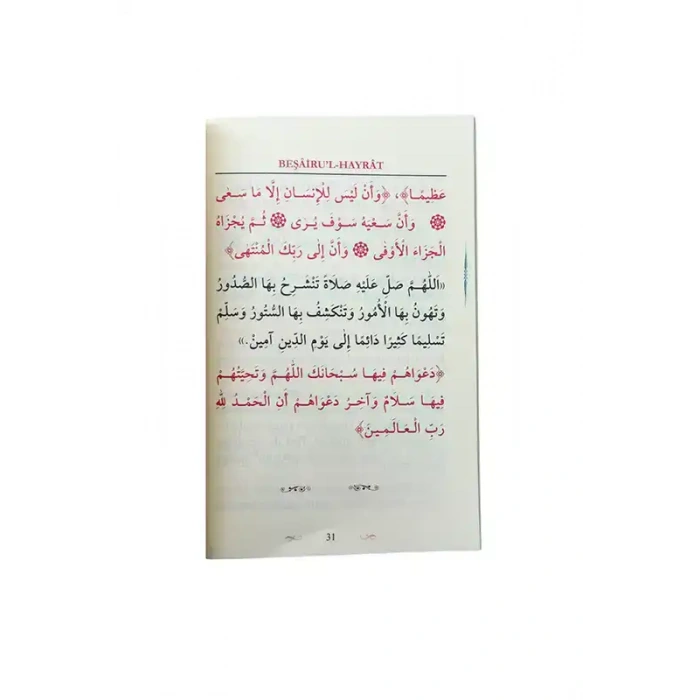 BEŞÂİRU'L-HAYRÂT
عَظِيمًا﴾، ﴿وَأَنْ لَيْسَ لِلْإِنْسَانِ إِلَّا مَا سَعٰى
۞ وَأَنَّ سَعْيَهُ سَوْفَ يُرٰى ۞ ثُمَّ يُجْزَاهُ
الْجَزَاءَ الْأَوْفٰى ۞ وَأَنَّ إِلٰى رَبِّكَ الْمُنْتَهٰى﴾
«اَللّٰهُمَّ صَلِّ عَلَيْهِ صَلَاةً تَنْشَرِحُ بِهَا الصُّدُورُ
وَتَهُونُ بِهَا الْأُمُورُ وَتَنْكَشِفُ بِهَا السُّتُورُ وَسَلِّمْ
تَسْلِيمًا كَثِيرًا دَائِمًا إِلٰى يَوْمِ الدِّينِ آمِينْ.»
﴿دَعْوَاهُمْ فِيهَا سُبْحَانَكَ اللّٰهُمَّ وَتَحِيَّتُهُمْ
فِيهَا سَلَامٌ وَآخِرُ دَعْوَاهُمْ أَنِ الْحَمْدُ لِلّٰهِ
رَبِّ الْعَالَمِينَ﴾
31